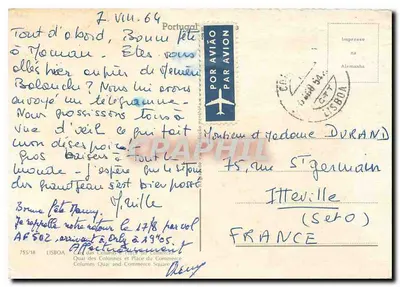 7. VIII. 64
Portugal
Tout d'abord, Bonne fête
à Maman. Etes vous
allés hier auprès de Memen
Bolanche? Nous lui avons
envoyé un télégramme.
Nous grossissons tous à
vue d'œil ce qui fait
mon désespoir.
Gros baisers à tout le
monde. J'espère que le séjour
des grandteau s'est bien passé
Mireille
Bonne fête Mamy.
Je rappelle notre retour le 17/8 par vol
AF 502. arrivant à Orly à 19h05.
Affectueusement
Rémy
PAR AVIÃO
PAR AVION
CTT
LISBOA
Impresso
na
Alemanha
Monsieur et Madame DURAND
75, rue St Germain
Itteville
(S et O)
FRANCE
755/18 LISBOA
Quai des Colonnes et Place du Commerce
Columns Quay and Commerce Square